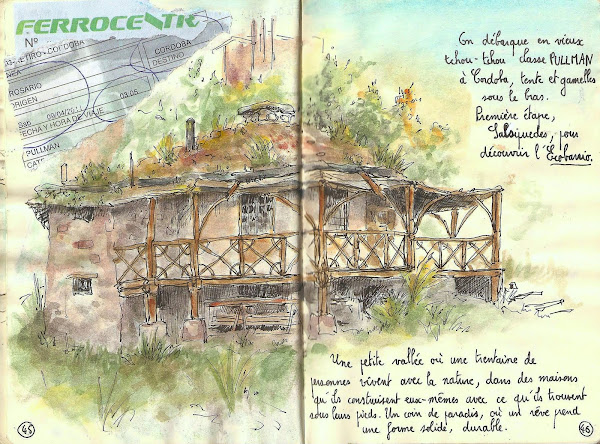 FERROCENTR
Nº
CORDOBA
CORDOBA
DESTINO
ROSARIO
ORIGEN
09/04/201
03:05
FECHA Y HORA DE VIAJE
PULLMAN
CAT
On débarque en vieux
tchou-tchou classe PULLMAN
à Cordoba, tente et gamelles
sous le bras.
Première étape,
Salsipuedes, pour
découvrir l'Ecobarrio.
Une petite vallée où une trentaine de
personnes vivent avec la nature, dans des maisons
qu'ils construisent eux-mêmes avec ce qu'ils trouvent
sous leurs pieds. Un coin de paradis, où un rêve prend
une forme solide, durable.
45
46